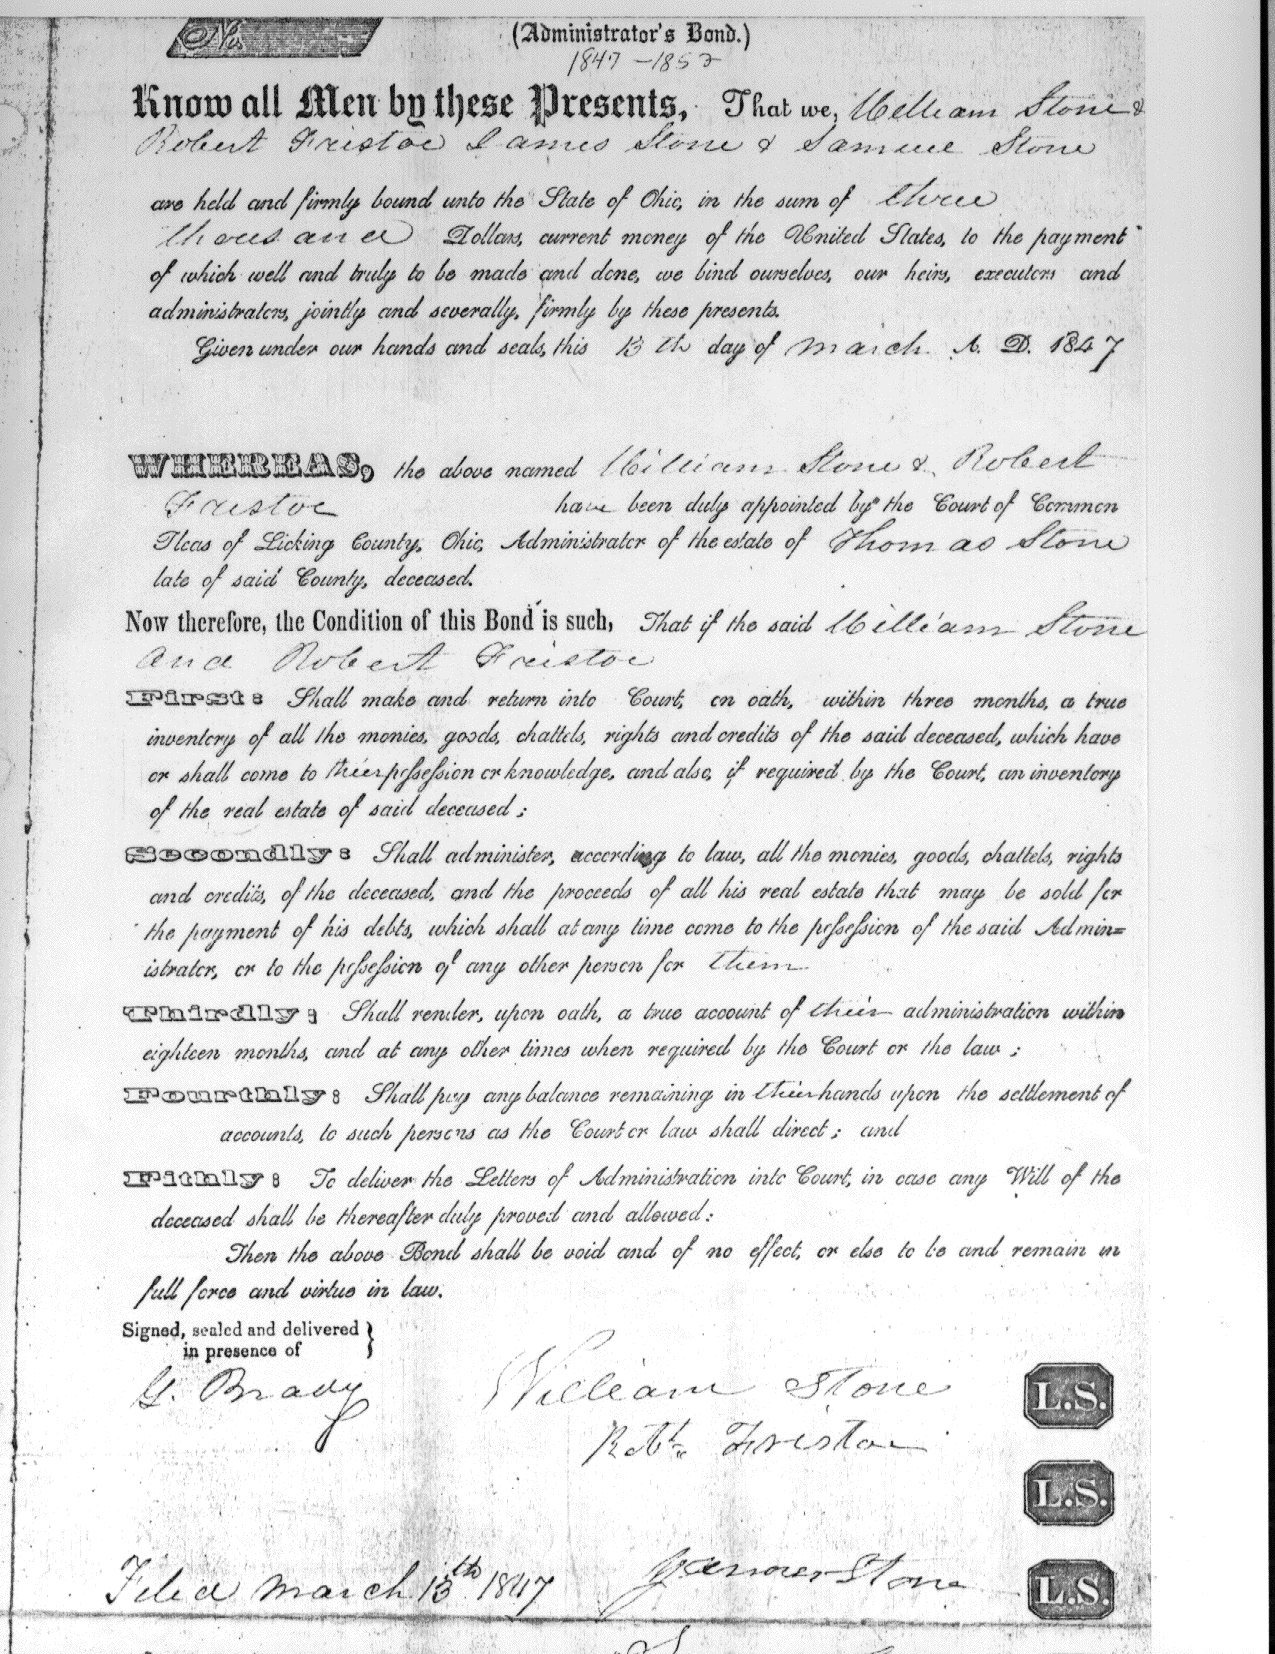 No.
(Administrator's Bond.)
1847 - 1852
Know all Men by these Presents, That we, William Stone &
Robert Fristoe James Stone & Samuel Stone
are held and firmly bound unto the State of Ohio, in the sum of three
thousand Dollars, current money of the United States, to the payment
of which well and truly to be made and done, we bind ourselves, our heirs, executors and
administrators, jointly and severally, firmly by these presents.
Given under our hands and seals, this 13th day of March A. D. 1847
WHEREAS, the above named William Stone & Robert
Fristoe have been duly appointed by the Court of Common
Pleas of Licking County, Ohio, Administrator of the estate of Thomas Stone
late of said County, deceased.
Now therefore, the Condition of this Bond is such, That if the said William Stone
and Robert Fristoe
First: Shall make and return into Court, on oath, within three months, a true
inventory of all the monies, goods, chattels, rights and credits of the said deceased, which have
or shall come to their possession or knowledge, and also, if required by the Court, an inventory
of the real estate of said deceased;
Secondly: Shall administer, according to law, all the monies, goods, chattels, rights
and credits, of the deceased, and the proceeds of all his real estate that may be sold for
the payment of his debts, which shall at any time come to the possession of the said Admin=
istrator, or to the possession of any other person for them
Thirdly; Shall render, upon oath, a true account of their administration within
eighteen months, and at any other times when required by the Court or the law;
Fourthly: Shall pay any balance remaining in their hands upon the settlement of
accounts, to such persons as the Court or law shall direct; and
Fithly: To deliver the Letters of Administration into Court, in case any Will of the
deceased shall be thereafter duly proved and allowed:
Then the above Bond shall be void and of no effect, or else to be and remain in
full force and virtue in law.
Signed, sealed and delivered }
in presence of
G. Brady
William Stone L.S.
Robt. Fristoe
L.S.
James Stone L.S.
Filed March 13th 1847